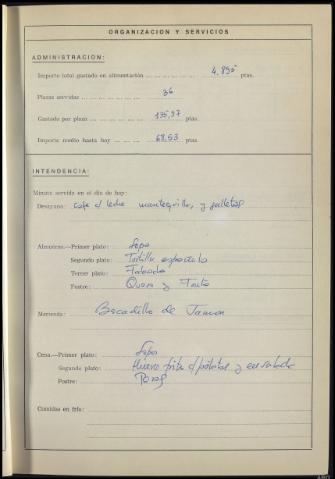 ORGANIZACION Y SERVICIOS
ADMINISTRACION:
Importe total gastado en alimentación ... 4.895 ptas.
Plazas servidas ... 36
Gastado por plaza ... 135,97 ptas.
Importe medio hasta hoy ... 68,53 ptas.
INTENDENCIA:
Minuta servida en el día de hoy:
Desayuno: café c/ leche mantequilla, y galletas
Almuerzo.—Primer plato: Sopa
Segundo plato: Tortilla española
Tercer plato:
Postre: Queso y
Merienda: Bocadillo de Jamon
Cena.—Primer plato: Sopa
Segundo plato: Huevo frito c/ patatas y ensalada
Postre: Peras
Comidas en frío: